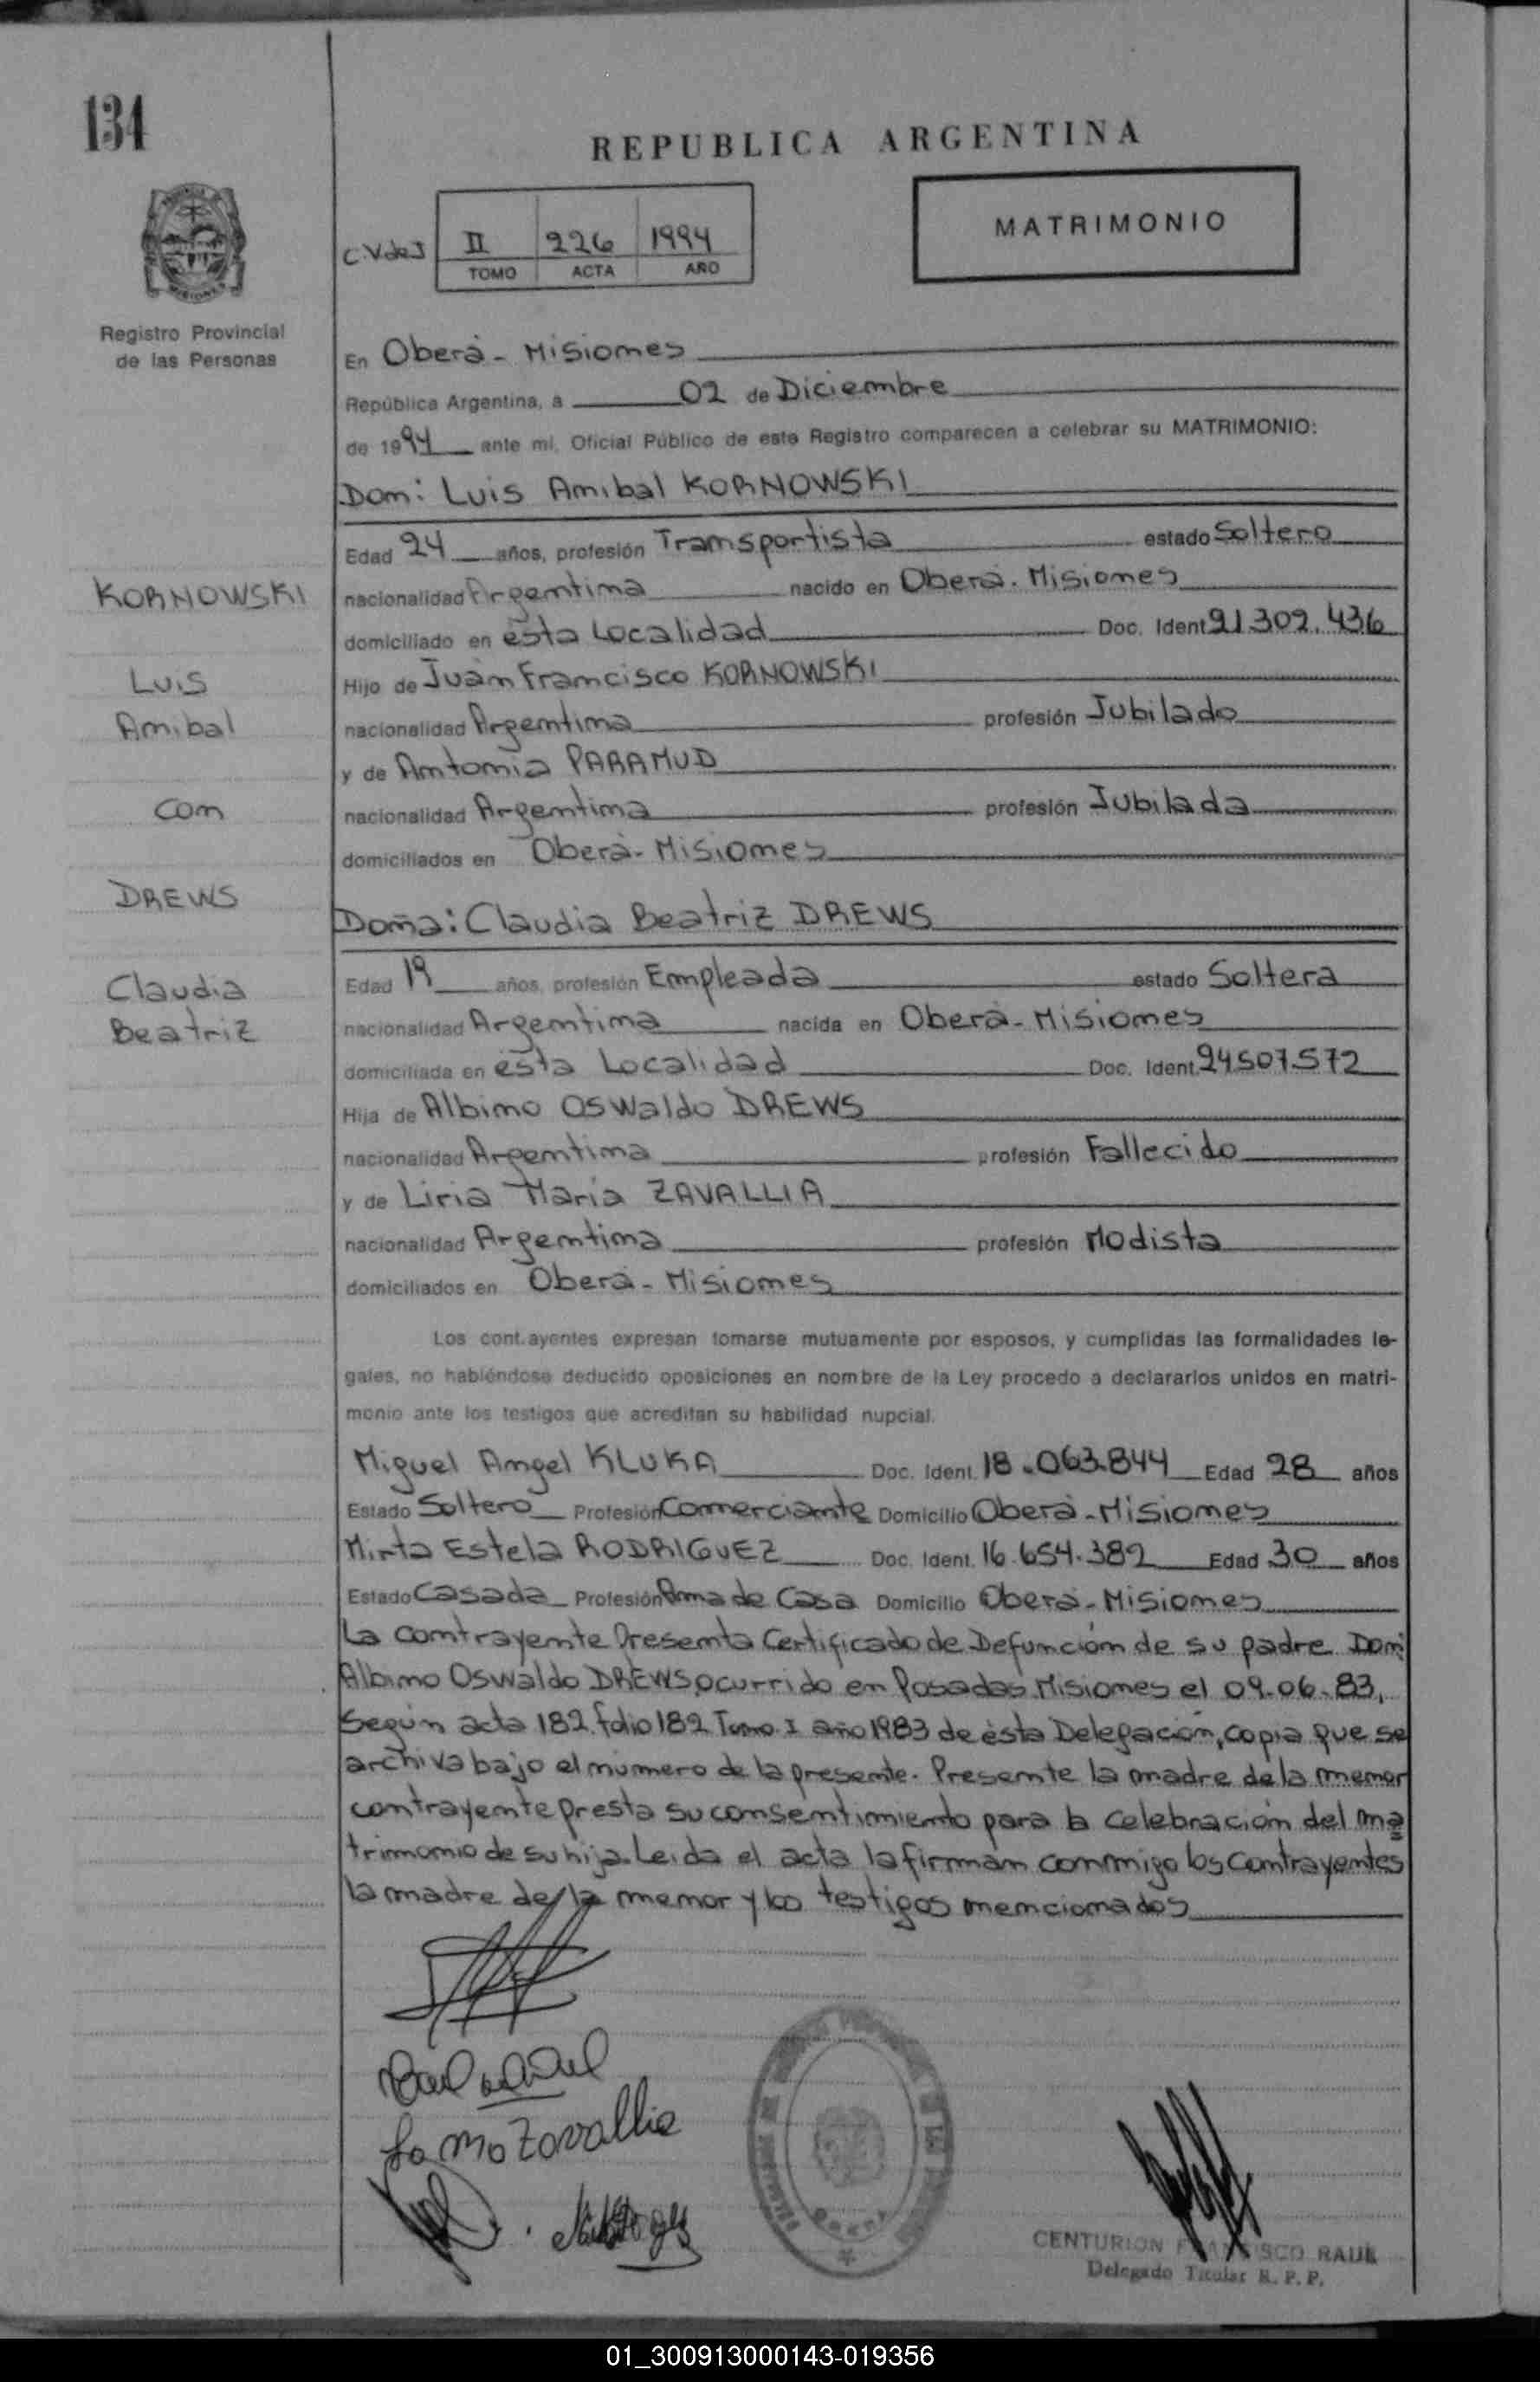 134
REPUBLICA ARGENTINA
MATRIMONIO
C.V de J II 226 1994
TOMO ACTA AÑO
MISIONES
Registro Provincial
de las Personas
En Oberá - Misiones
República Argentina, a 02 de Diciembre
de 1994 ante mi, Oficial Público de este Registro comparecen a celebrar su MATRIMONIO:
Don: Luis Anibal KORNOWSKI
Edad 24 años, profesión Transportista estado Soltero
KORNOWSKI
nacionalidad Argentina nacido en Oberá. Misiones
domiciliado en ésta Localidad Doc. Ident 21.302.436
Luis
Hijo de Juan Francisco KORNOWSKI
Anibal
nacionalidad Argentina profesión Jubilado
y de Antonia PARAMUD
con
nacionalidad Argentina profesión Jubilada
domiciliados en Oberá - Misiones
DREWS
Doña: Claudia Beatriz DREWS
Claudia
Edad 19 años, profesión Empleada estado Soltera
Beatriz
nacionalidad Argentina nacida en Oberá - Misiones
domiciliada en ésta Localidad Doc. Ident. 24.507.572
Hija de Albino Oswaldo DREWS
nacionalidad Argentina profesión Fallecido
y de Liria María ZAVALLIA
nacionalidad Argentina profesión Modista
domiciliados en Oberá - Misiones
Los contrayentes expresan tomarse mutuamente por esposos, y cumplidas las formalidades le-
gales, no habiéndose deducido oposiciones en nombre de la Ley procedo a declararlos unidos en matri-
monio ante los testigos que acreditan su habilidad nupcial.
Miguel Angel KLUKA Doc. Ident. 18.063.844 Edad 28 años
Estado Soltero Profesión Comerciante Domicilio Oberá - Misiones
Mirta Estela RODRIGUEZ Doc. Ident. 16.654.382 Edad 30 años
Estado Casada Profesión Ama de Casa Domicilio Oberá - Misiones
La contrayente Presenta Certificado de Defunción de su padre Don:
Albino Oswaldo DREWS, ocurrido en Posadas Misiones el 09.06.83,
Según acta 182 folio 182 Tomo I año 1983 de ésta Delegación, copia que se
archiva bajo el número de la presente. Presente la madre de la menor
contrayente presta su consentimiento para la celebración del ma
trimonio de su hija. Leida el acta la firman conmigo los contrayentes
la madre de la menor y los testigos mencionados
Zavallia
CENTURION FRANCISCO RAUL
Delegado Titular R. P. P.
01_300913000143-019356